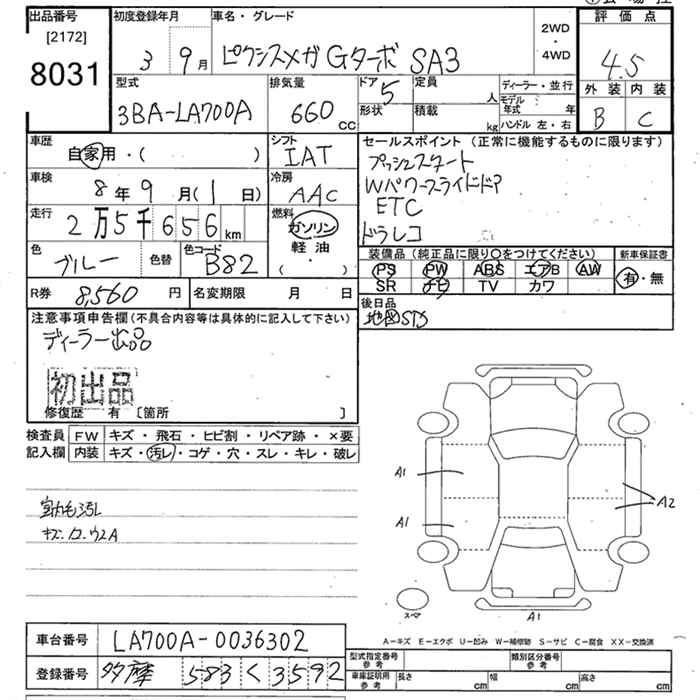 出品番号
[2172]
8031
初度登録年月
3 9月
車名・グレード
ピクシスメガ Gターボ SA3
2WD
・
4WD
評価点
4.5
外装 内装
B C
型式
3BA-LA700A
排気量
660 cc
ドア 5
形状
定員 人
積載 kg
ディーラー・並行
モデル年式 年
ハンドル 左・右
車歴
自家用・( )
シフト
IAT
車検
8年9月(1日)
冷房
AAC
走行
2万5千656km
燃料
ガソリン
軽油
( ・ )
色
ブルー
色替
色コード
B82
R券 8,560円
名変期限 月 日
セールスポイント(正常に機能するものに限ります)
プッシュスタート
Wパワースライドドア
ETC
ドラレコ
装備品(純正品に限り○をつけてください)
PS PW ABS エアB AW
SR ナビ TV カワ
新車保証書
有・無
後日品
地図STD
注意事項申告欄(不具合内容等は具体的に記入して下さい)
ディーラー出品
初出品
修復歴 有 [箇所 ]
検査員 FW キズ・飛石・ヒビ割・リペア跡・×要
記入欄 内装 キズ・汚レ・コゲ・穴・スレ・キレ・破レ
室内毛汚レ
キズ.カ.ウスA
A1
A1
A2
スペア
A1
車台番号 LA700A-0036302
登録番号 多摩 583 く 3592
A-キズ E-エクボ U-凹み W-補修跡 S-サビ C-腐食 XX-交換済
型式指定番号 参考
類別区分番号 参考
車庫証明用 参考 長さ cm 幅 cm 高さ cm